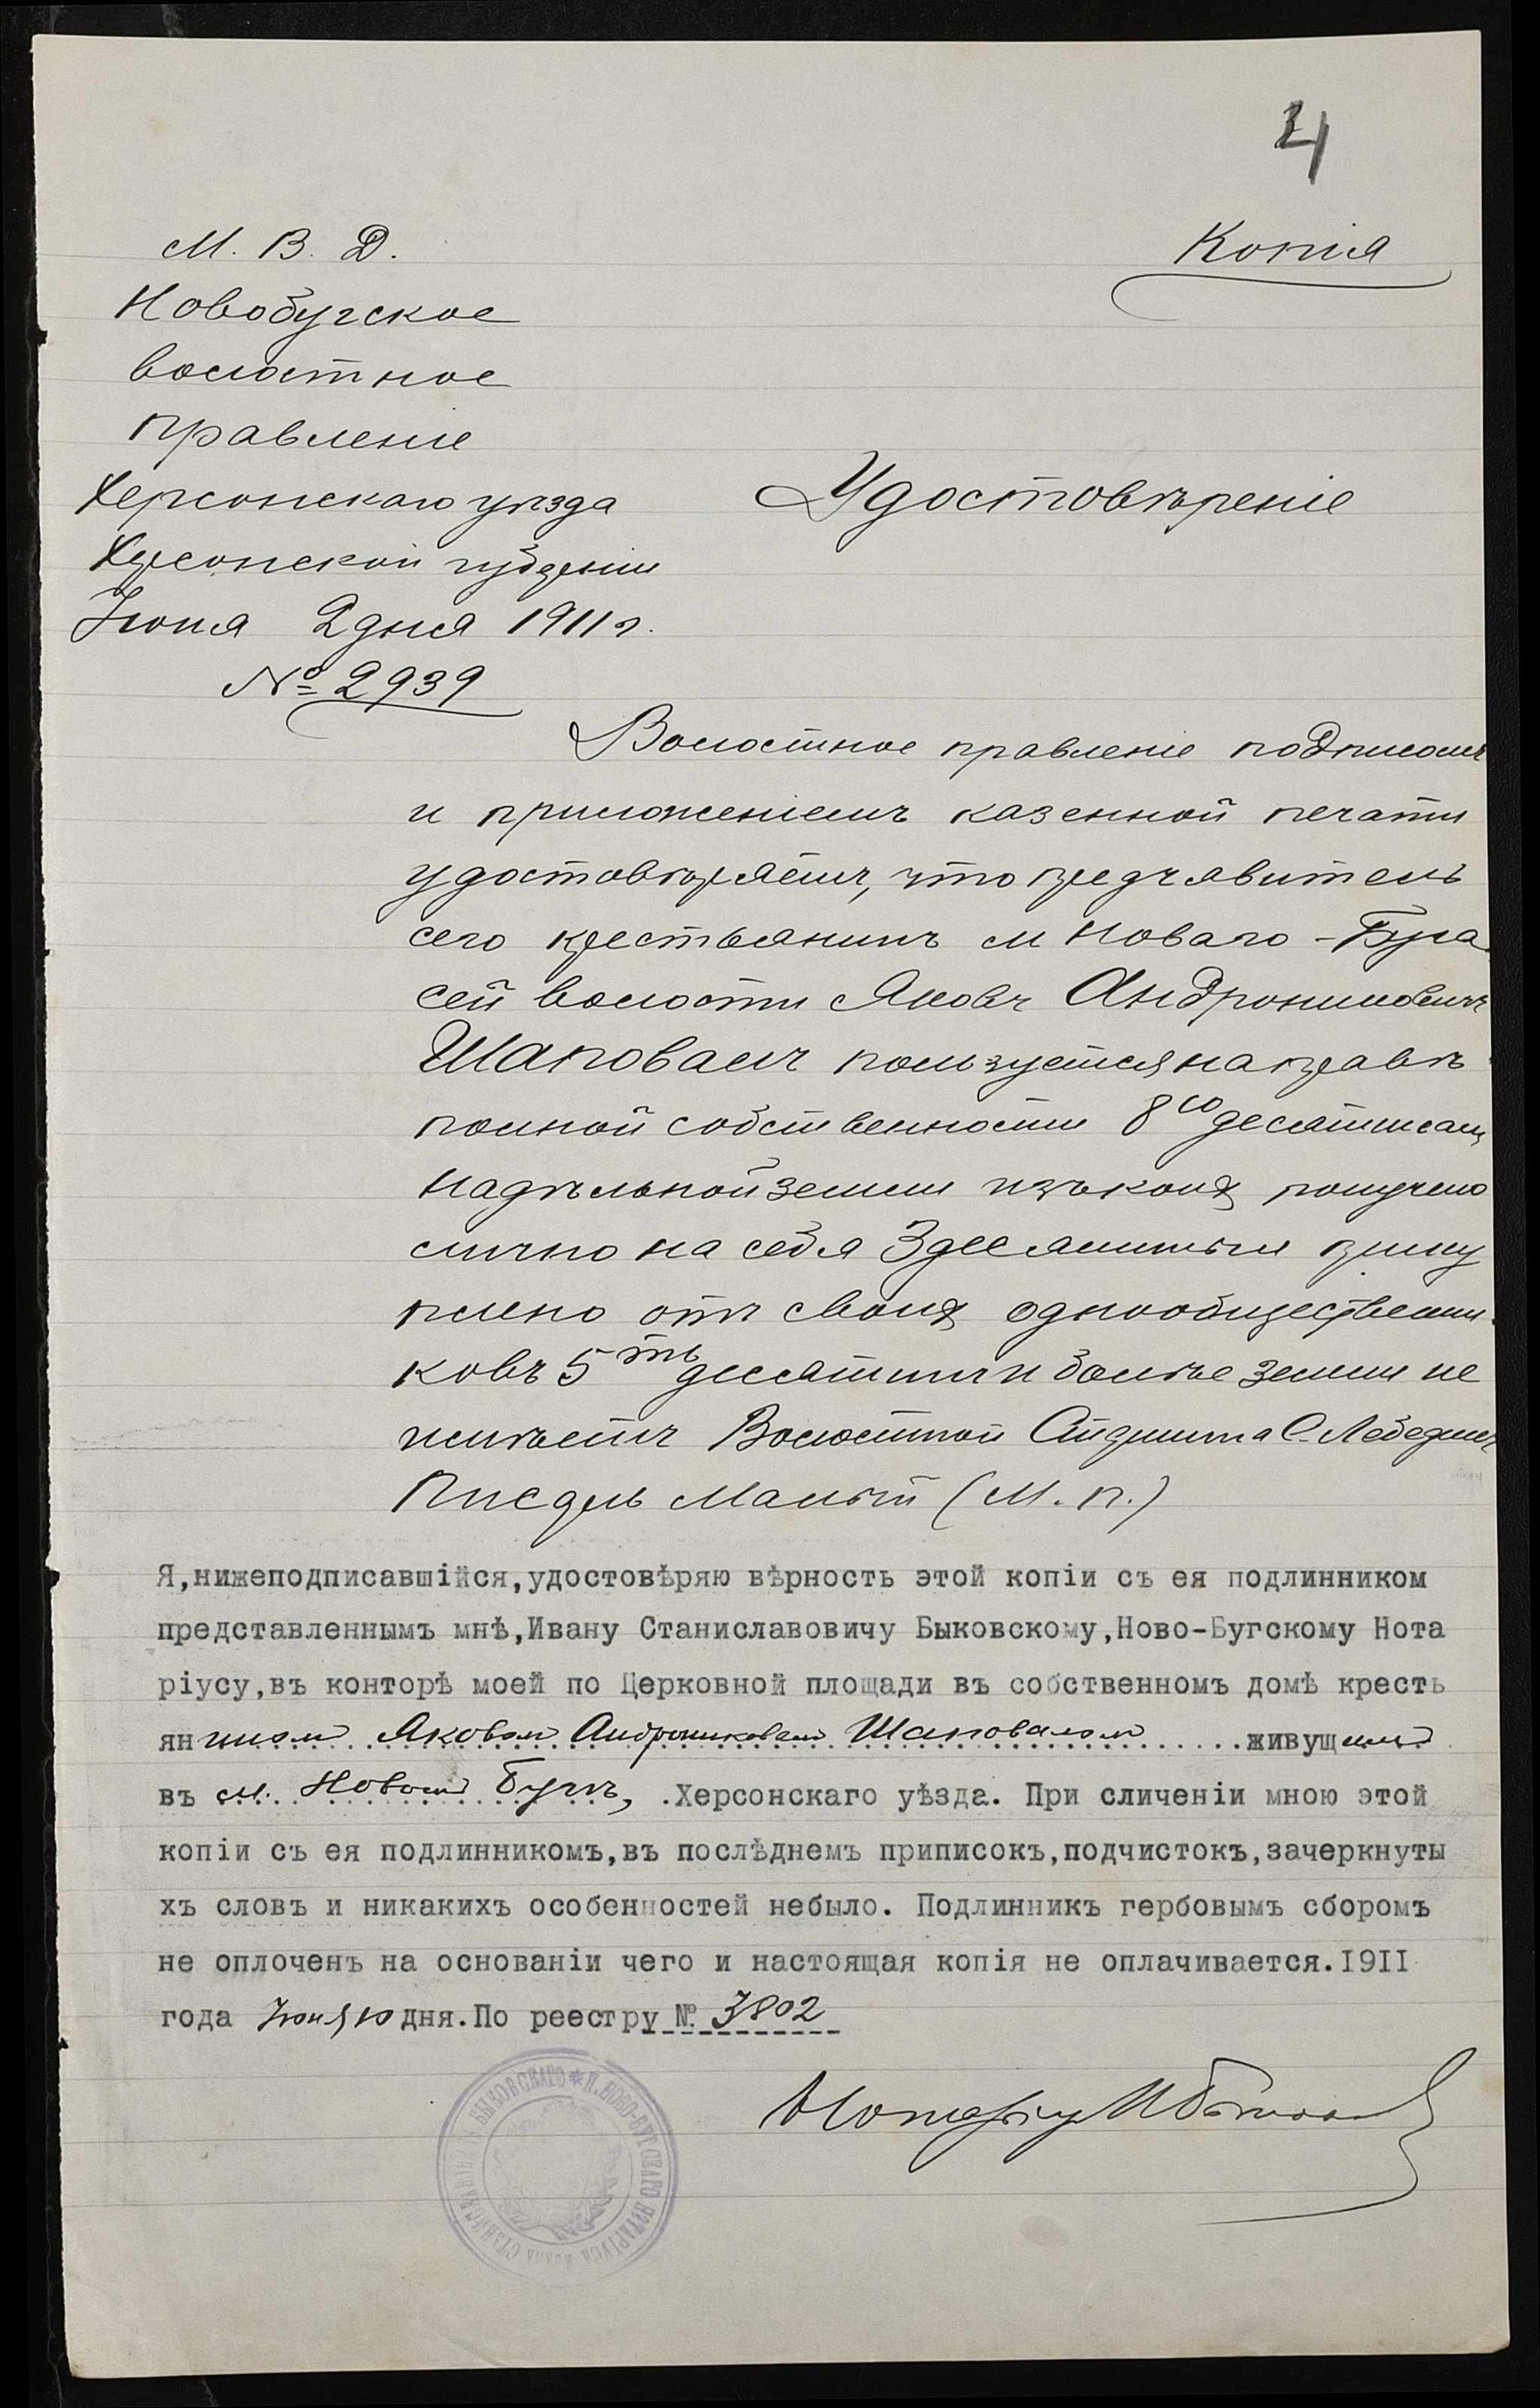 4
Копія
М. В. Д.
Новобугское
волостное
правленіе
Херсонскаго уѣзда
Херсонской губерніи
Іюня 2 дня 1911 г.
№ 2939
Удостовѣреніе
Волостное правленіе подписомъ
и приложеніемъ казенной печати
удостовѣряетъ, что предъявитель
сего крестьянинъ м Новаго-Буга
сей волости Яковъ Андрониковичъ
Шаповалъ пользуется на правѣ
полной собственности 8ю десятинами
надѣльной земли изъ коихъ получено
лично на себя 3 десятины и прику
плено отъ своихъ однообщественни
ковъ 5ть десятинъ и болѣе земли не
имѣетъ Волостной Старшина С. Лебедин
Писарь Малый (М. п.)
Я,нижеподписавшійся,удостовѣряю вѣрность этой копіи съ ея подлинником
представленнымъ мнѣ,Ивану Станиславовичу Быковскому,Ново-Бугскому Нота
ріусу,въ конторѣ моей по Церковной площади въ собственномъ домѣ кресть
яниномъ Яковомъ Андрониковымъ Шаповаломъ живущимъ
въ м. Новомъ Бугѣ, Херсонскаго уѣзда. При сличеніи мною этой
копіи съ ея подлинникомъ,въ послѣднемъ приписокъ,подчистокъ,зачеркнуты
хъ словъ и никакихъ особенностей небыло. Подлинникъ гербовымъ сборомъ
не оплоченъ на основаніи чего и настоящая копія не оплачивается.1911
года Іюня 10 дня.По реестру № 3802
Нотаріусъ И Быковскій
П. НОВО-БУГСКАГО НОТАРІУСА ИВАНА СТАНИСЛАВОВИЧА БЫКОВСКАГО